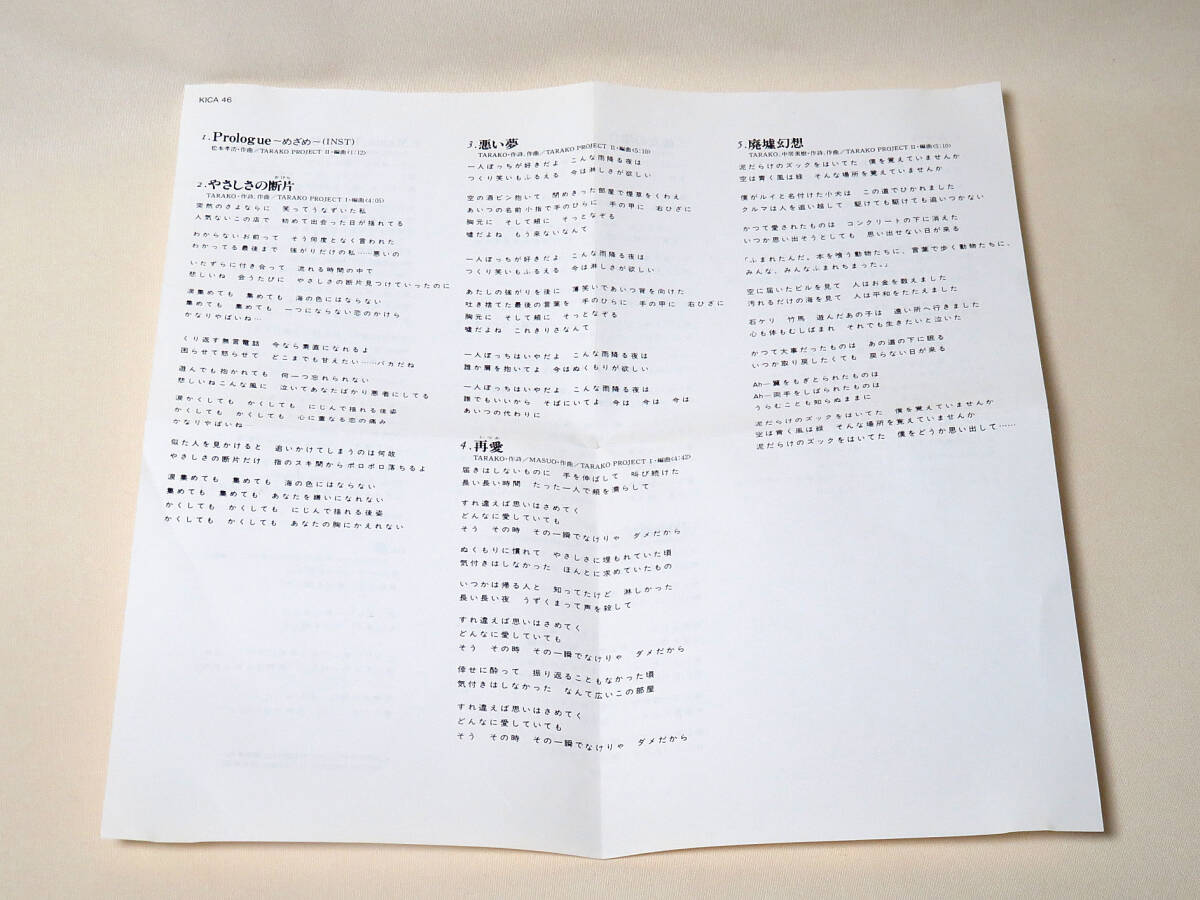 KICA 46
1. Prologue ～めざめ～(INST)
松本孝治・作曲／TARAKO PROJECT II・編曲(1:12)
かけら
2. やさしさの断片
TARAKO・作詩,作曲／TARAKO PROJECT I・編曲(4:05)
突然のさよならに　笑ってうなずいた私
人気ないこの店で　初めて出会った日が揺れてる
わからないお前って　そう何度となく言われた
わかってる最後まで　強がりだけの私……悪いの
いたずらに付き合って　流れる時間の中で
悲しいね　会うたびに　やさしさの断片見つけていったのに
涙集めても　集めても　海の色にはならない
集めても　集めても　一つにならない恋のかけら
かなりやばいね…
くり返す無言電話　今なら素直になれるよ
困らせて怒らせて　どこまでも甘えたい……バカだね
遊んでも抱かれても　何一つ忘れられない
悲しいねこんな風に　泣いてあなたばかり悪者にしてる
涙かくしても　かくしても　にじんで揺れる後姿
かくしても　かくしても　心に重なる恋の痛み
かなりやばいね…
似た人を見かけると　追いかけてしまうのは何故
やさしさの断片だけ　指のスキ間からポロポロ落ちるよ
涙集めても　集めても　海の色にはならない
集めても　集めても　あなたを嫌いになれない
かくしても　かくしても　にじんで揺れる後姿
かくしても　かくしても　あなたの胸にかえれない
3. 悪い夢
TARAKO・作詩,作曲／TARAKO PROJECT II・編曲(5:10)
一人ぼっちが好きだよ　こんな雨降る夜は
つくり笑いもふるえる　今は淋しさが欲しい
空の酒ビン抱いて　閉めきった部屋で煙草をくわえ
あいつの名前小指で手のひらに　手の甲に　右ひざに
胸元に　そして頬に　そっとなぞる
嘘だよね　もう来ないなんて
一人ぼっちが好きだよ　こんな雨降る夜は
つくり笑いもふるえる　今は淋しさが欲しい
あたしの強がりを後に　薄笑いであいつ背を向けた
吐き捨てた最後の言葉を　手のひらに　手の甲に　右ひざに
胸元に　そして頬に　そっとなぞる
嘘だよね　これきりさなんて
一人ぼっちはいやだよ　こんな雨降る夜は
誰か肩を抱いてよ　今はぬくもりが欲しい
一人ぼっちはいやだよ　こんな雨降る夜は
誰でもいいから　そばにいてよ　今は　今は　今は
あいつの代わりに
いつか
4. 再愛
TARAKO・作詩／MASUO・作曲／TARAKO PROJECT I・編曲(4:42)
届きはしないものに　手を伸ばして　叫び続けた
長い長い時間　たった一人で頬を濡らして
すれ違えば思いはさめてく
どんなに愛していても
そう　その時　その一瞬でなけりゃ　ダメだから
ぬくもりに慣れて　やさしさに埋もれていた頃
気付きはしなかった　ほんとに求めていたもの
いつかは帰る人と　知ってたけど　淋しかった
長い長い夜　うずくまって声を殺して
すれ違えば思いはさめてく
どんなに愛していても
そう　その時　その一瞬でなけりゃ　ダメだから
倖せに酔って　振り返ることもなかった頃
気付きはしなかった　なんて広いこの部屋
すれ違えば思いはさめてく
どんなに愛していても
そう　その時　その一瞬でなけりゃ　ダメだから
5. 廃墟幻想
TARAKO,中居美樹・作詩,作曲／TARAKO PROJECT II・編曲(5:10)
泥だらけのズックをはいてた　僕を覚えていませんか
空は青く風は緑　そんな場所を覚えていませんか
僕がルイと名付けた小犬は　この道でひかれました
クルマは人を追い越して　駆けても駆けても追いつかない
かつて愛されたものは　コンクリートの下に消えた
いつか思い出そうとしても　思い出せない日が来る
「ふまれたんだ。本を喰う動物たちに、言葉で歩く動物たちに、
みんな、みんなふまれちまった。」
空に届いたビルを見て　人はお金を数えました
汚れるだけの海を見て　人は平和をたたえました
石ケリ　竹馬　遊んだあの子は　遠い所へ行きました
心も体もむしばまれ　それでも生きたいと泣いた
かつて大事だったものは　あの道の下に眠る
いつか取り戻したくても　戻らない日が来る
Ah―翼をもぎとられたものは
Ah―両手をしばられたものは
うらむことも知らぬままに
泥だらけのズックをはいてた　僕を覚えていませんか
空は青く風は緑　そんな場所を覚えていませんか
泥だらけのズックをはいてた　僕をどうか思い出して……